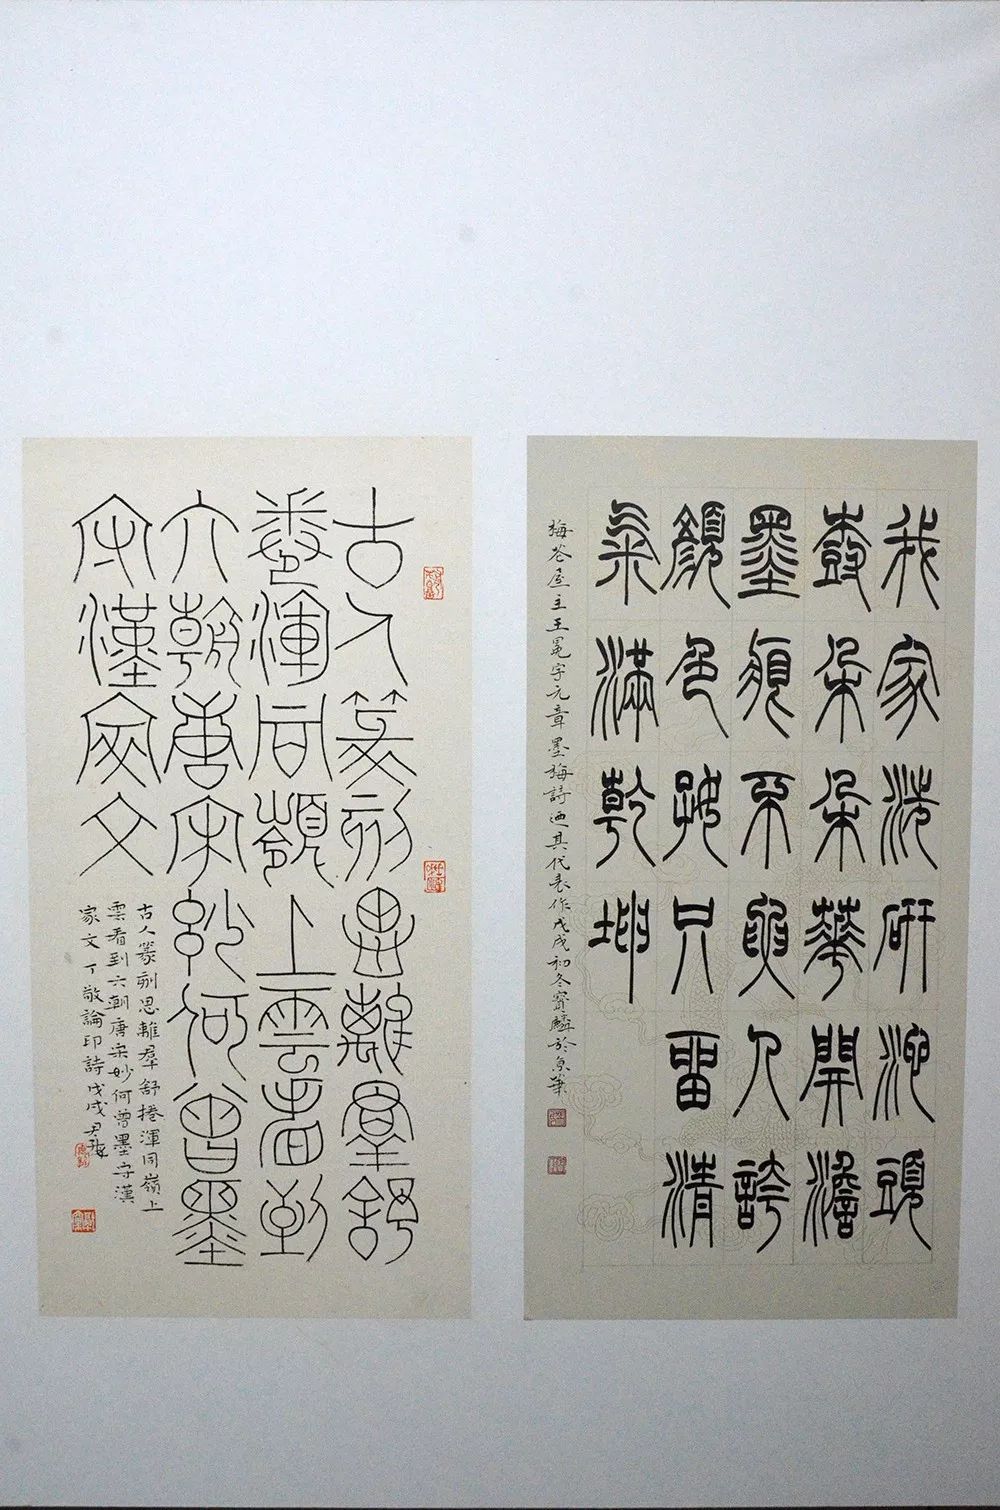 我家洗研池頭
樹朵朵華開澹
墨痕不要人誇
顏色好只留清
气滿乾坤
梅花屋主王冕字元章墨梅詩迺其代表作戊戌初冬寶麟於京華
古人篆刻思離羣舒
卷渾同嶺上雲看到
六朝唐宋妙何曾墨
守漢家文
古人篆刻思離羣舒捲渾同嶺上
雲看到六朝唐宋妙何曾墨守漢
家文丁敬論印詩戊戌尹